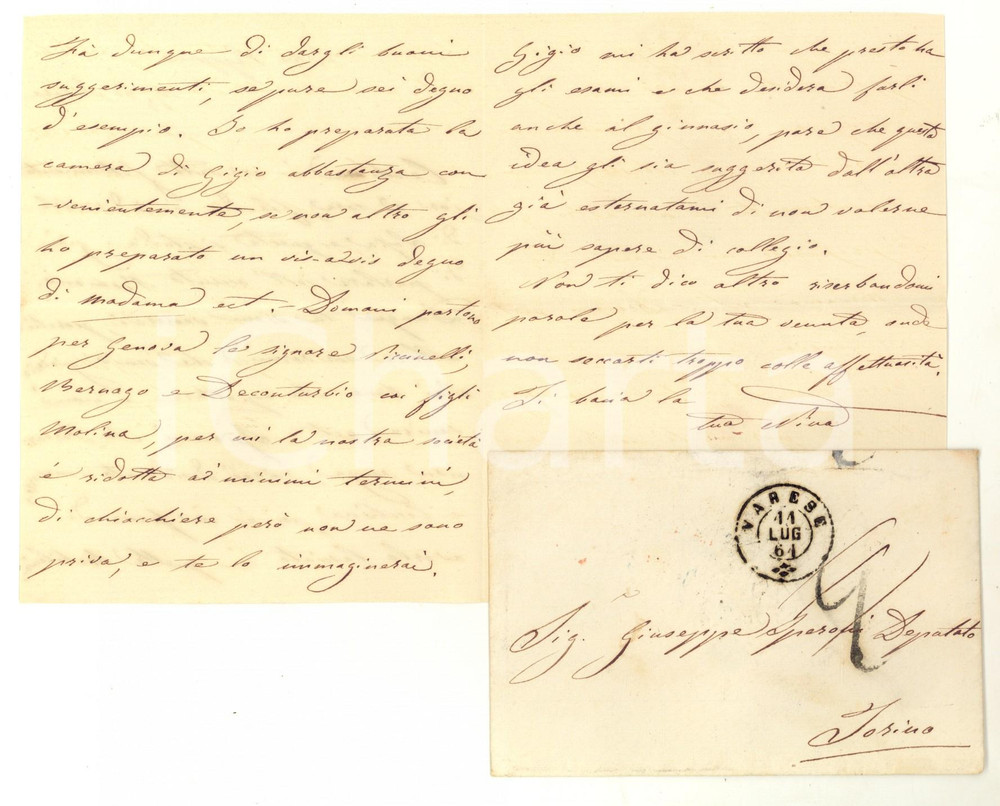 Fà dunque di dargli buoni
suggerimenti, se pure sei degno
d'esempio. Io ho preparata la
camera di Gigio abbastanza con
-venientemente, se non altro gli
ho preparato un vis-a-vis degno
di madama ect. Domani partono
per Genova le signore Piccinelli,
Bernago e Deconturbio coi figli
Molina, per cui la nostra società
è ridotta ai minimi termini,
di chiacchiere però non ne sono
priva, e te lo immaginerai.
Gigio mi ha scritto che presto ha
gli esami e che desidera farli
anche al ginnasio, pare che questa
idea gli sia suggerita dall'altra
già esternatami di non volerne
più sapere di collegio.
Non ti dico altro riserbandomi
parole per la tua venuta, onde
non seccarti troppo colle affettuosità.
Ti bacia la
tua Nina
VARESE
11
LUG
61
2
Sig. Giuseppe Speroni Deputato
Torino
iCharta